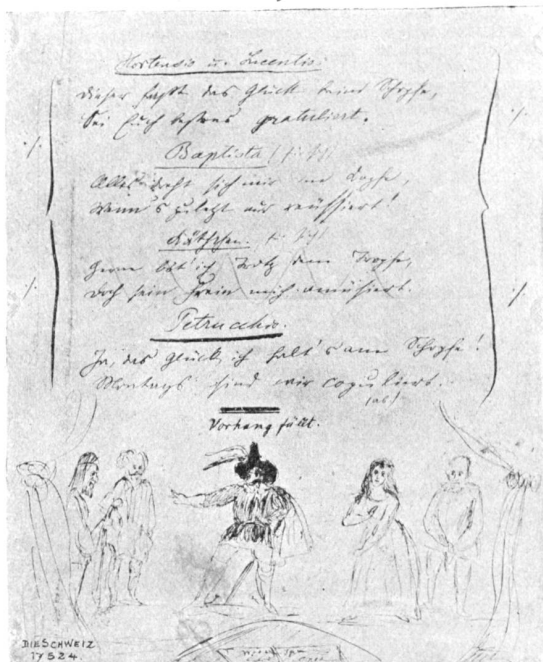 Hortensio u. Lucentio.
Dieser faßt das Glück beim Schopfe,
Sei Euch bestens gratuliert.
Baptista (f. sich)
Alles dreht sich mir im Kopfe,
Wenn's zuletzt nur reüssiert!
Käthchen. (f. sich)
Gerne böt' ich Trotz dem Tropfe,
Doch sein Frein mich amüsiert.
Petrucchio.
Ja, das Glück, ich halt's am Schopfe!
Montags sind wir copuliert.
(ab)
Vorhang fällt.
DIE SCHWEIZ
17524.